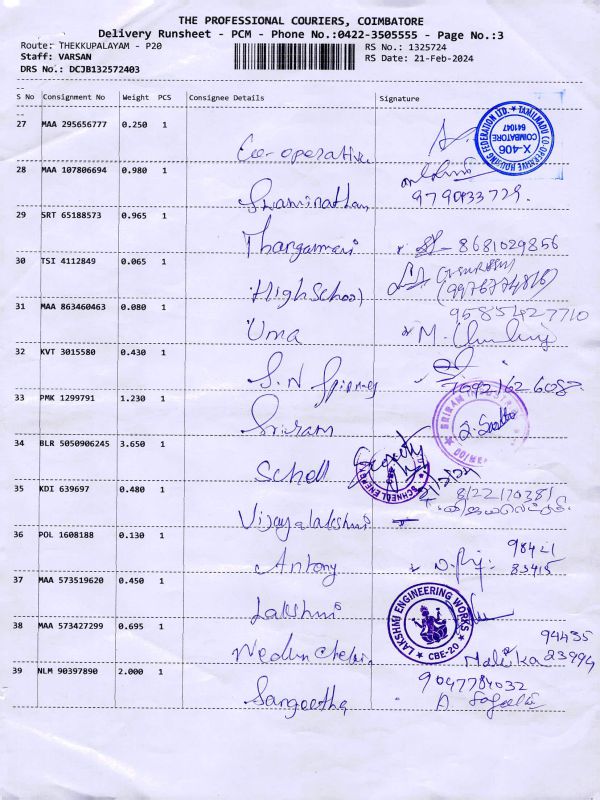 THE PROFESSIONAL COURIERS, COIMBATORE
Delivery Runsheet - PCM - Phone No.:0422-3505555 - Page No.:3
Route: THEKKUPALAYAM - P20
RS No.: 1325724
Staff: VARSAN
RS Date: 21-Feb-2024
DRS No.: DCJB132572403
S No Consignment No Weight PCS Consignee Details Signature
27 MAA 295656777 0.250 1
Co-operative
TAMILNADU CO-OPERATIVE HOUSING FEDERATION LTD.
X-406
COIMBATORE
641047
28 MAA 107806694 0.980 1
Swaminathan
9790933729.
29 SRT 65188573 0.965 1
Thangamani
8681029856
30 TSI 4112849 0.065 1
High School
(9976774816)
31 MAA 863460463 0.080 1
Uma
9585427710
M.
32 KVT 3015580 0.430 1
S.N Spinning
33 PMK 1299791 1.230 1
Sriram
SRIRAM
34 BLR 5050906245 3.650 1
Schell
Security
SCHNELL ENGINE
35 KDI 639697 0.480 1
Vijayalakshmi
36 POL 1608188 0.130 1
Antony
98421
83415
37 MAA 573519620 0.450 1
Lakshmi
LAKSHMI ENGINEERING WORKS
CBE-20
38 MAA 573427299 0.695 1
Malika
94435
23994
39 NLM 90397890 2.000 1
Sangeetha
9047784032